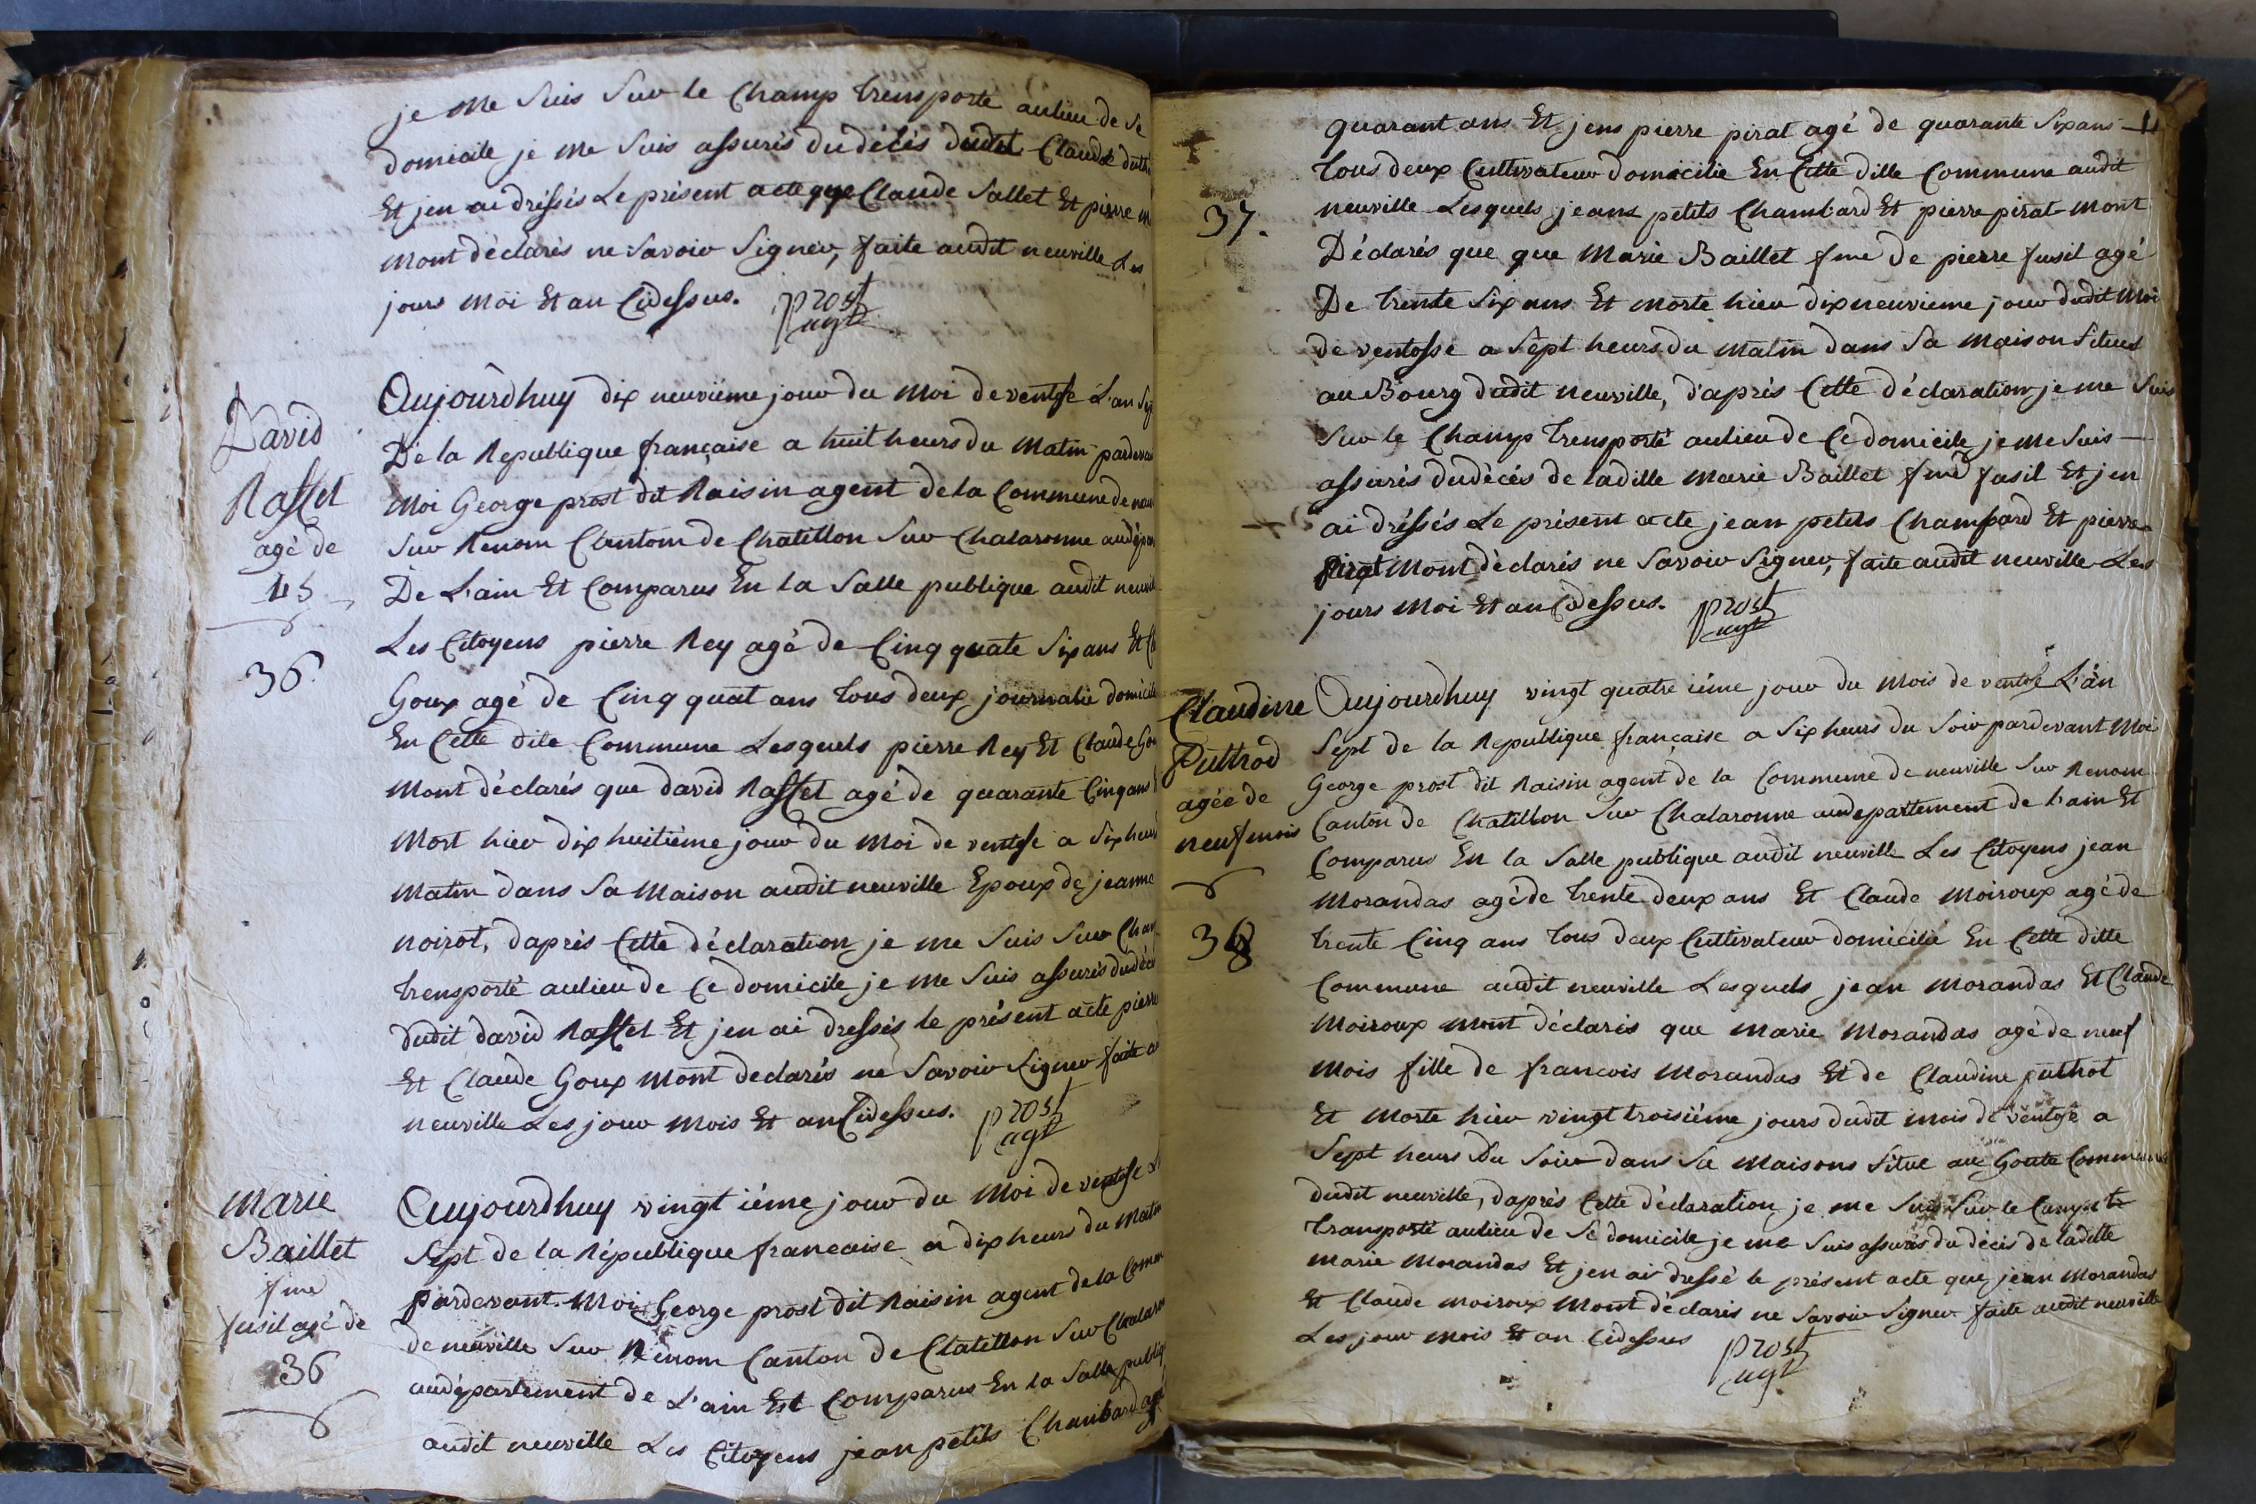 je me suis sur le Champ trensporté aulieu de se
domicile je me suis assurés dudécés dudit Claude duth
Et jen ai dréssés Le présent acte que Claude Sallet Et pierre m
mont déclarés ne savoir signer, faite audit neuville Les
jours moi Et an Cidessus. prost
agt
David
Rasset
agé de
45
36
Oujourdhuy dix neuviéme jour du moi de ventose L'an Sep
De la Republique française a huit heurs du matin pardeva
moi George prost dit Raisin agent de la Commune de neu
sur Renom Cantom de Chatillon sur Chalaronne audépar
De L'ain Et Comparus En la Salle publique audit neuvil
Les Citoyens pierre Rey agé de Cinq quate six ans Et Cl
Goux agé de Cinq quat ans tous deux journalié domicilé
En Cette dite Commune Lesquels pierre Rey Et Claude Gou
mont déclarés que david Rasset agé de quarante Cinq ans
mort hier dix huitiéme jour du moi de ventose a six heur
matin dans sa maison audit neuville Epoux de jeanne
noirot, daprés Cette déclaration je me suis sur Cham
trensporté aulieu de Ce domicile je me suis assurés dudéce
dudit david Rasset Et jen ai dressés le présent acte pierre
Et Claude Goux mont declarés ne savoir signer faite a
neuville Les jour mois Et an Cidessus. prost
agt
marie
Baillet
fme
fusil agé de
36
Oujourdhuy vingt iéme jour du moi de ventose L
Sept de la République francaise a dix heurs du matin
pardevant moi George prost dit Raisin agent de la Comm
de neuville sur Renom Canton de Clatillon sur Chalaron
audépartement de L'ain Est Comparus En la Salle publiq
audit neuville Les Citoyens jean petits Chambard agé
quarant ans Et jens pierre pirat agé de quarante six ans
tous deux Cultivateur domicilie En Cette ditte Commune audit
37.
neuville Lesquels jeans petits Chambard Et pierre pirat mont
Déclarés que que marie Baillet fme de pierre fusil agé
De trente six ans Et morte hier dix neuvieme jour dudit moi
de ventosse a sept heurs du matin dans sa maison situes
au Bourg dudit neuville, d'aprés Cette déclaration je me suis
sur le Champ trensporté aulieu de Ce domicile je me suis
assurés dudécés de laditte marie Baillet fme fusil Et jen
ai dréssés Le présent acte jean petits Chambard Et pierre
pirat mont déclarés ne savoir signer, faite audit neuville Les
jours moi Et an Cidessus. prost
agt
Claudine
Puthod
agée de
neuf mois
38
Oujourdhuy vingt quatre iéme jour du mois de ventose L'an
Sept de la Republique française a six heurs du soir pardevant moi
George prost dit Raisin agent de la Commune de neuville sur Renom
Canton de Chatillon sur Chalaronne audepartement de L'ain Et
Comparus En la Salle publique audit neuville Les Citoyens jean
morandas agé de trente deux ans Et Claude moiroux agé de
trente Cinq ans tous deux Cultivateur domicilié En Cette ditte
Commune audit neuville Lesquels jean morandas Et Claude
moiroux mont déclarés que marie morandas agé de neuf
mois fille de francois morandas Et de Claudine puthot
Et morte hier vingt troisiéme jours dudit mois de ventose a
sept heurs du soir dans sa maisons situe au Goute Commune
dudit neuville, daprés Cette déclaration je me suis sur le
transporté aulieu de se domicile je me suis assurés du décés de laditte
marie morandas Et jen ai dressé le présent acte que jean morandas
Et Claude moiroux mont déclarés ne savoir signer faite audit neuville
Les jour mois Et an Cidessus prost
agt